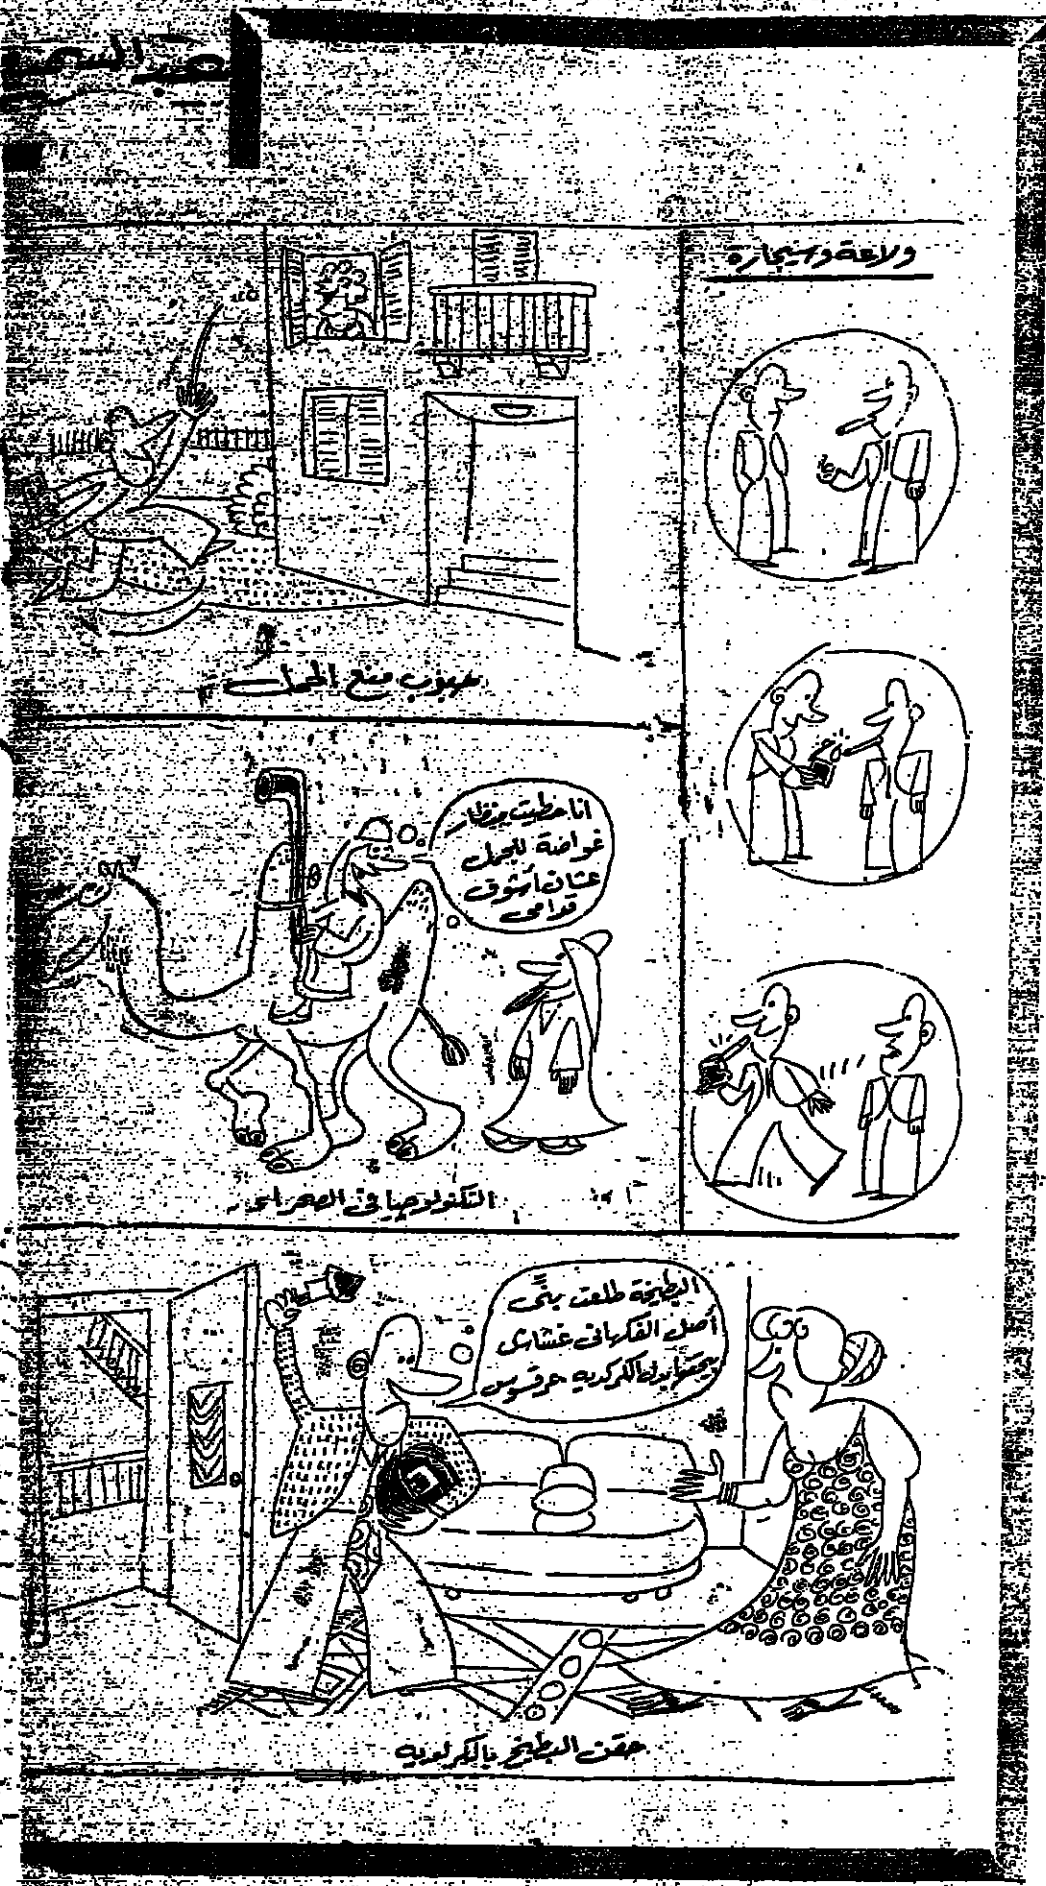 عبد السميع
ولاعة وسيجارة
حبوب منع الحمل
انا حطيت منظار
غواصة للجمل
عشان أشوف
قدامى
التكنولوجيا فى الصحراء
البطيخة طلعت بنَّى
أصل الفكهانى غشاش
بيحقنها بدل الكركديه عرقسوس
حقن البطيخ بالكركديه